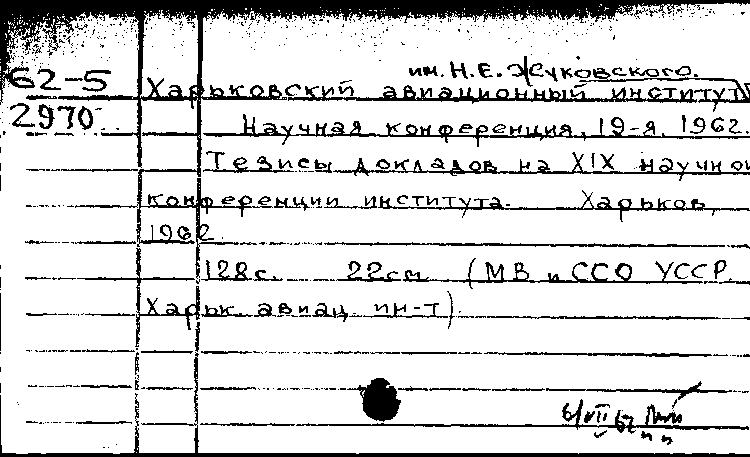 им. Н.Е. Жуковского.
62-5 Харьковский авиационный институт
2970 Научная конференция, 19-я. 1962.
Тезисы докладов на XIX научной
конференции института. Харьков,
1962.
128с. 22см (МВ и ССО УССР.
Харьк. авиац. ин-т).
6/VII 62